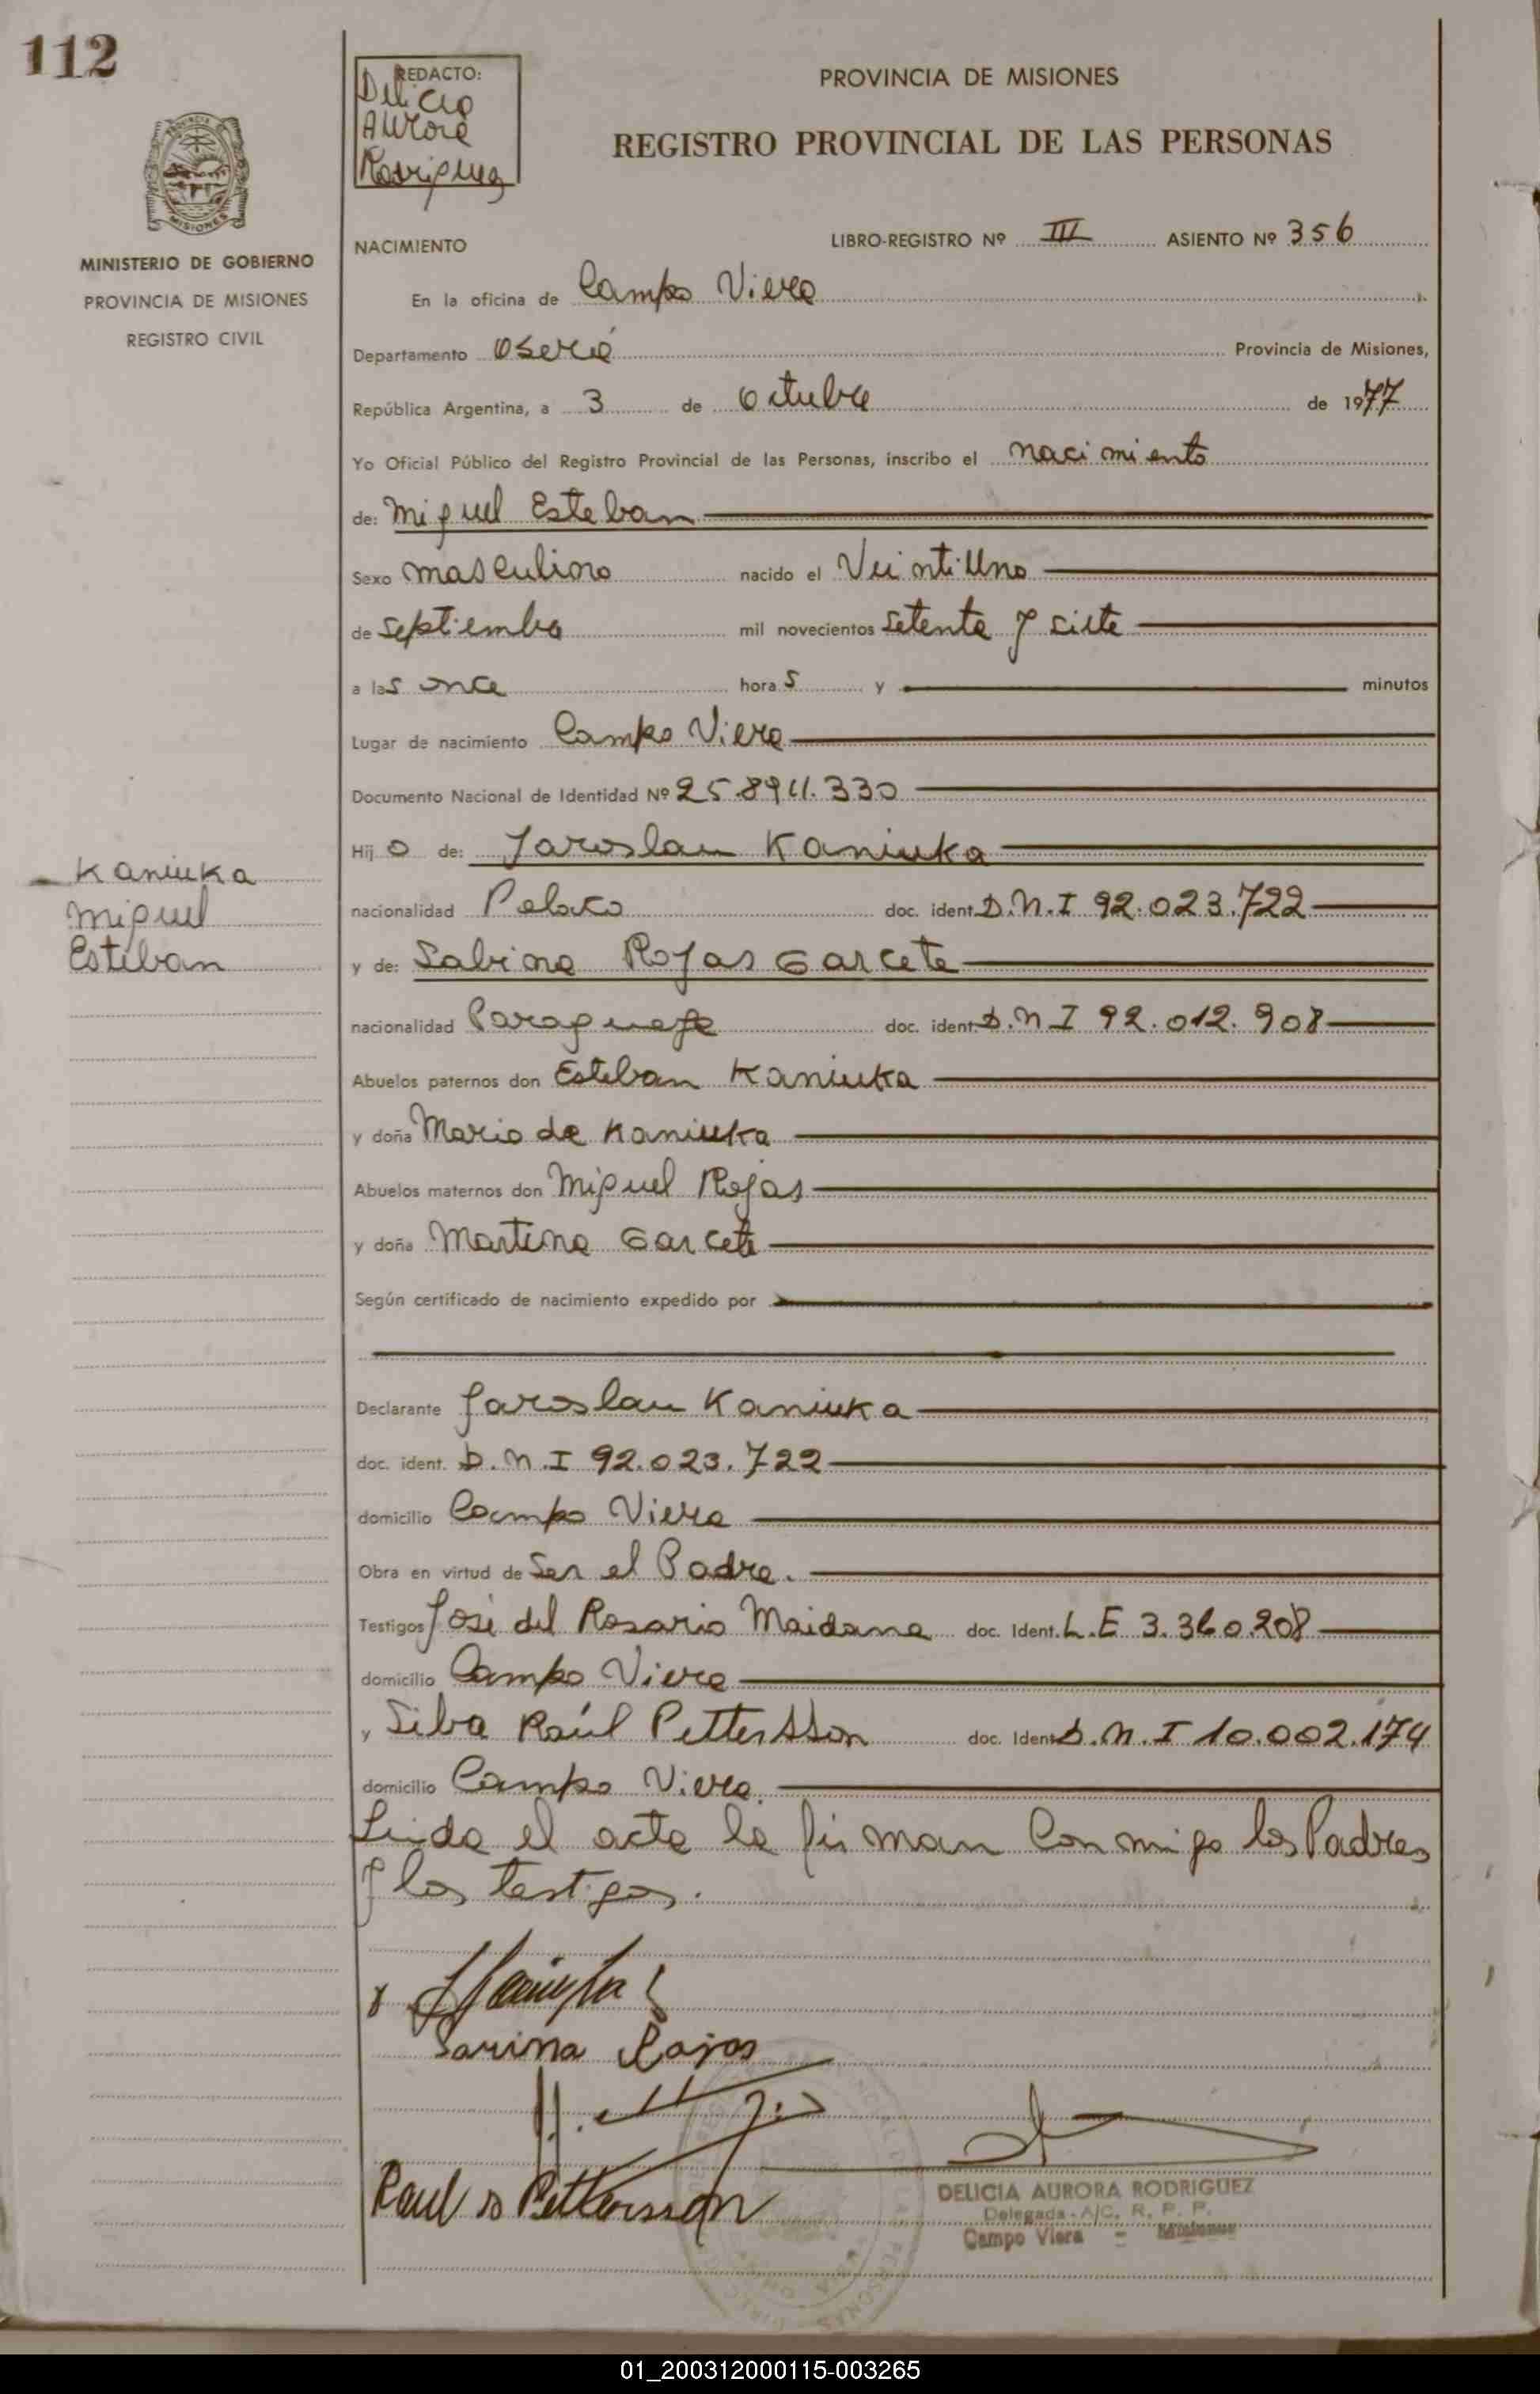 112
REDACTO:
Delicia
Aurora
Rodriguez
PROVINCIA DE MISIONES
REGISTRO PROVINCIAL DE LAS PERSONAS
MINISTERIO DE GOBIERNO
PROVINCIA DE MISIONES
REGISTRO CIVIL
NACIMIENTO LIBRO-REGISTRO Nº III ASIENTO Nº 356
En la oficina de Campo Viera
Departamento Oberá Provincia de Misiones,
República Argentina, a 3 de Octubre de 1977
Yo Oficial Público del Registro Provincial de las Personas, inscribo el nacimiento
de: Miguel Esteban
Sexo masculino nacido el Veintiuno
de septiembre mil novecientos setenta y siete
a las once horas y minutos
Lugar de nacimiento Campo Viera
Documento Nacional de Identidad Nº
Hijo de: Jaroslau Kaniuka
Kaniuka
Miguel
Esteban
nacionalidad Polaco doc. ident. D.N.I 92.023.722
y de: Sabina Rojas Garcete
nacionalidad Paraguaya doc. ident. D.N.I 92.012.908
Abuelos paternos don Esteban Kaniuka
y doña Maria de Kaniuka
Abuelos maternos don Miguel Rojas
y doña Martina Garcete
Según certificado de nacimiento expedido por
Declarante Jaroslau Kaniuka
doc. ident. D.N.I 92.023.722
domicilio Campo Viera
Obra en virtud de Ser el Padre.
Testigos José del Rosario Maidana doc. Ident. L.E 3.360.208
domicilio Campo Viera
y Silva Raúl Pettersson doc. Ident. D.N.I 10.002.174
domicilio Campo Viera.
Leida el acta la firman Conmigo los Padres
y los testigos.
Sarina Rojas
Raul S Pettersson
DELICIA AURORA RODRIGUEZ
Delegada - A/C. R. P. P.
Campo Viera - Misiones
01_200312000115-003265